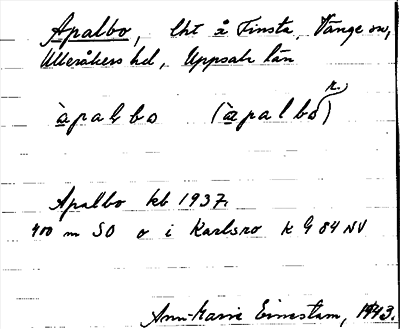 Apalbo, lht å Finsta, Vänge sn,
Ulleråkers hd, Uppsala län
àpaƚbo (àpalbo) r.
Apalbo kb 1937.
400 m SO o i Karlsro k G 84 NV
Ann-Marie Ernestam, 1943.